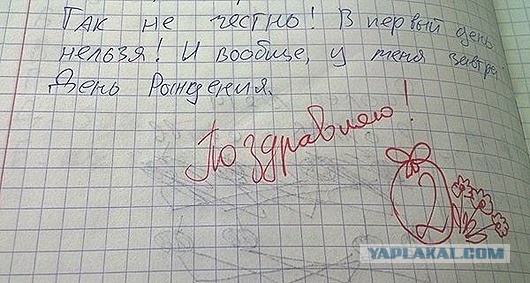 Так не честно! В первый день
нельзя! И вообще, у меня завтра
День Рождения.
Поздравляю!
2
YAPLAKAL.COM